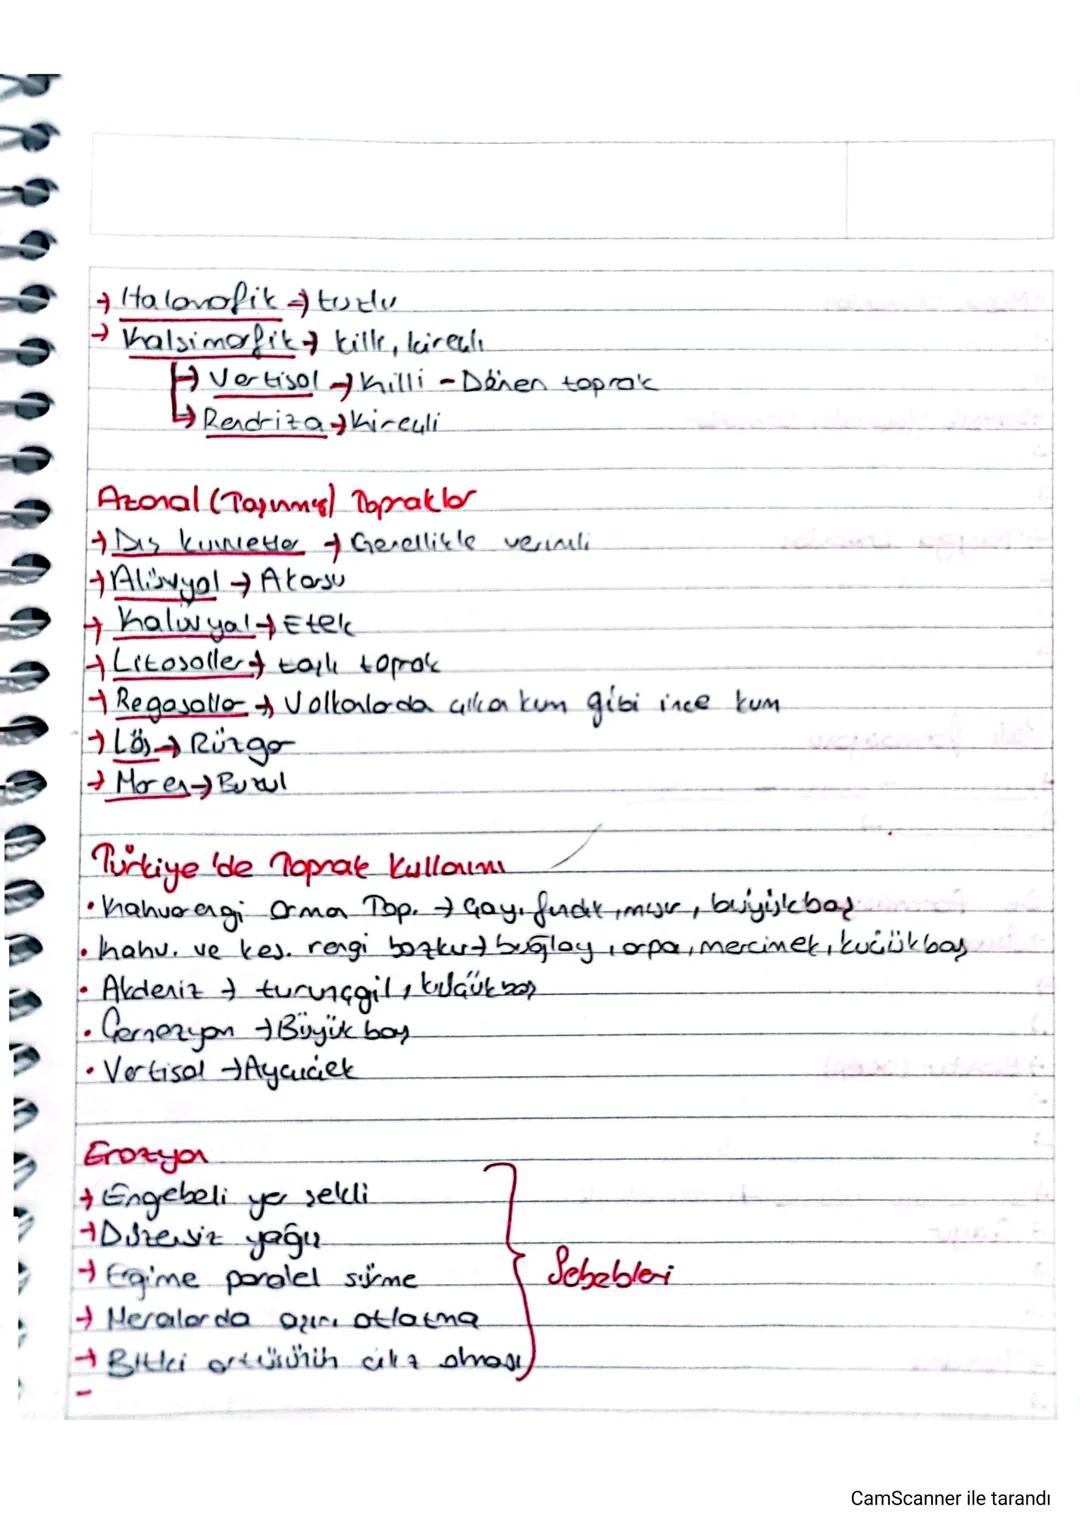 → Halomofik → tuzlu
→ Kalsimorfik → killi, kireçli
→ Vertisol → Killi - Dönen toprak
→ Rendzina → Kireçli
Azonal (Taşınmış) Topraklar
→ Dış kuvvetler → Genellikle verimli
→ Alüvyal → Akarsu
→ Kalüvyal → Etek
→ Litosoller → taşlı toprak
→ Regosoller → Volkanlarda çıkan kum gibi ince kum
→ Lös → Rüzgar
→ Moren → Buzul
Türkiye'de Toprak Kullanımı
• Kahverengi Orman Top. → Çay, fındık, mısır, büyükbaş
• kahv. ve kes. rengi bozkır → buğday, arpa, mercimek, küçükbaş
• Akdeniz → turunçgil, küçükbaş
• Çernezyon → Büyük baş
• Vertisol → Ayçiçek
Erozyon
→ Engebeli yer şekli
→ Düzensiz yağış
→ Eğime paralel sürme
→ Meralarda aşırı otlatma
→ Bitki örtüsünün cılız olması
Sebebleri
CamScanner ile tarandı